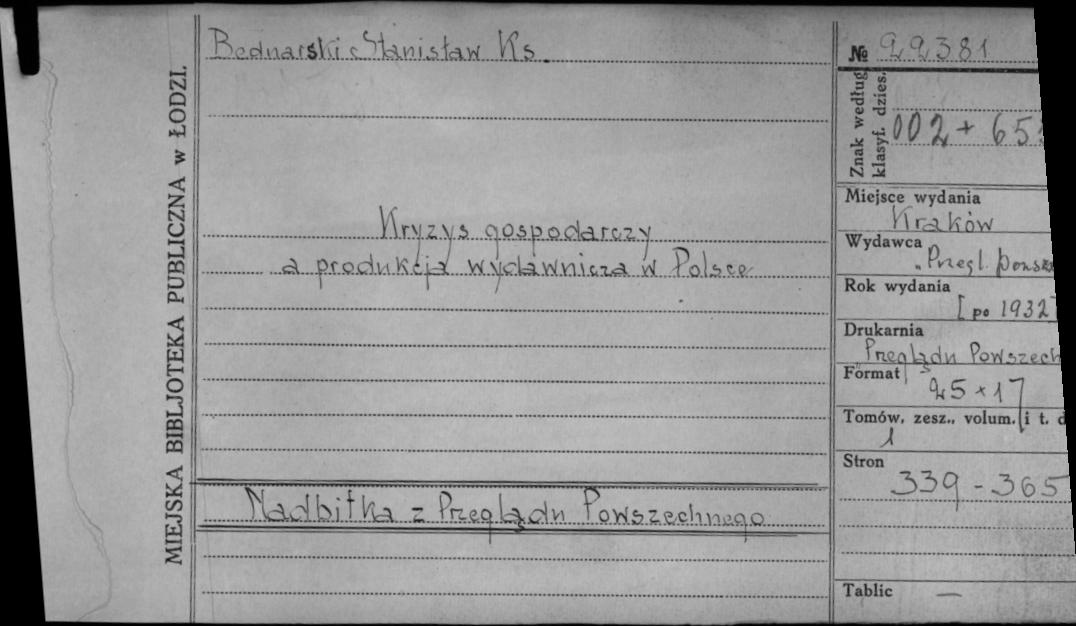 MIEJSKA BIBLJOTEKA PUBLICZNA w ŁODZI.
Bednarski Stanisław Ks.
Kryzys gospodarczy
a produkcja wydawnicza w Polsce
Nadbitka z Przeglądu Powszechnego
№ 22381
Znak według
klasyf. dzies.
002 + 65
Miejsce wydania
Kraków
Wydawca
"Przegl. Powsz
Rok wydania
[po 1932]
Drukarnia
Przeglądu Powszech
Format
25 × 17
Tomów, zesz., volum. i t. d
1
Stron
339 - 365
Tablic —